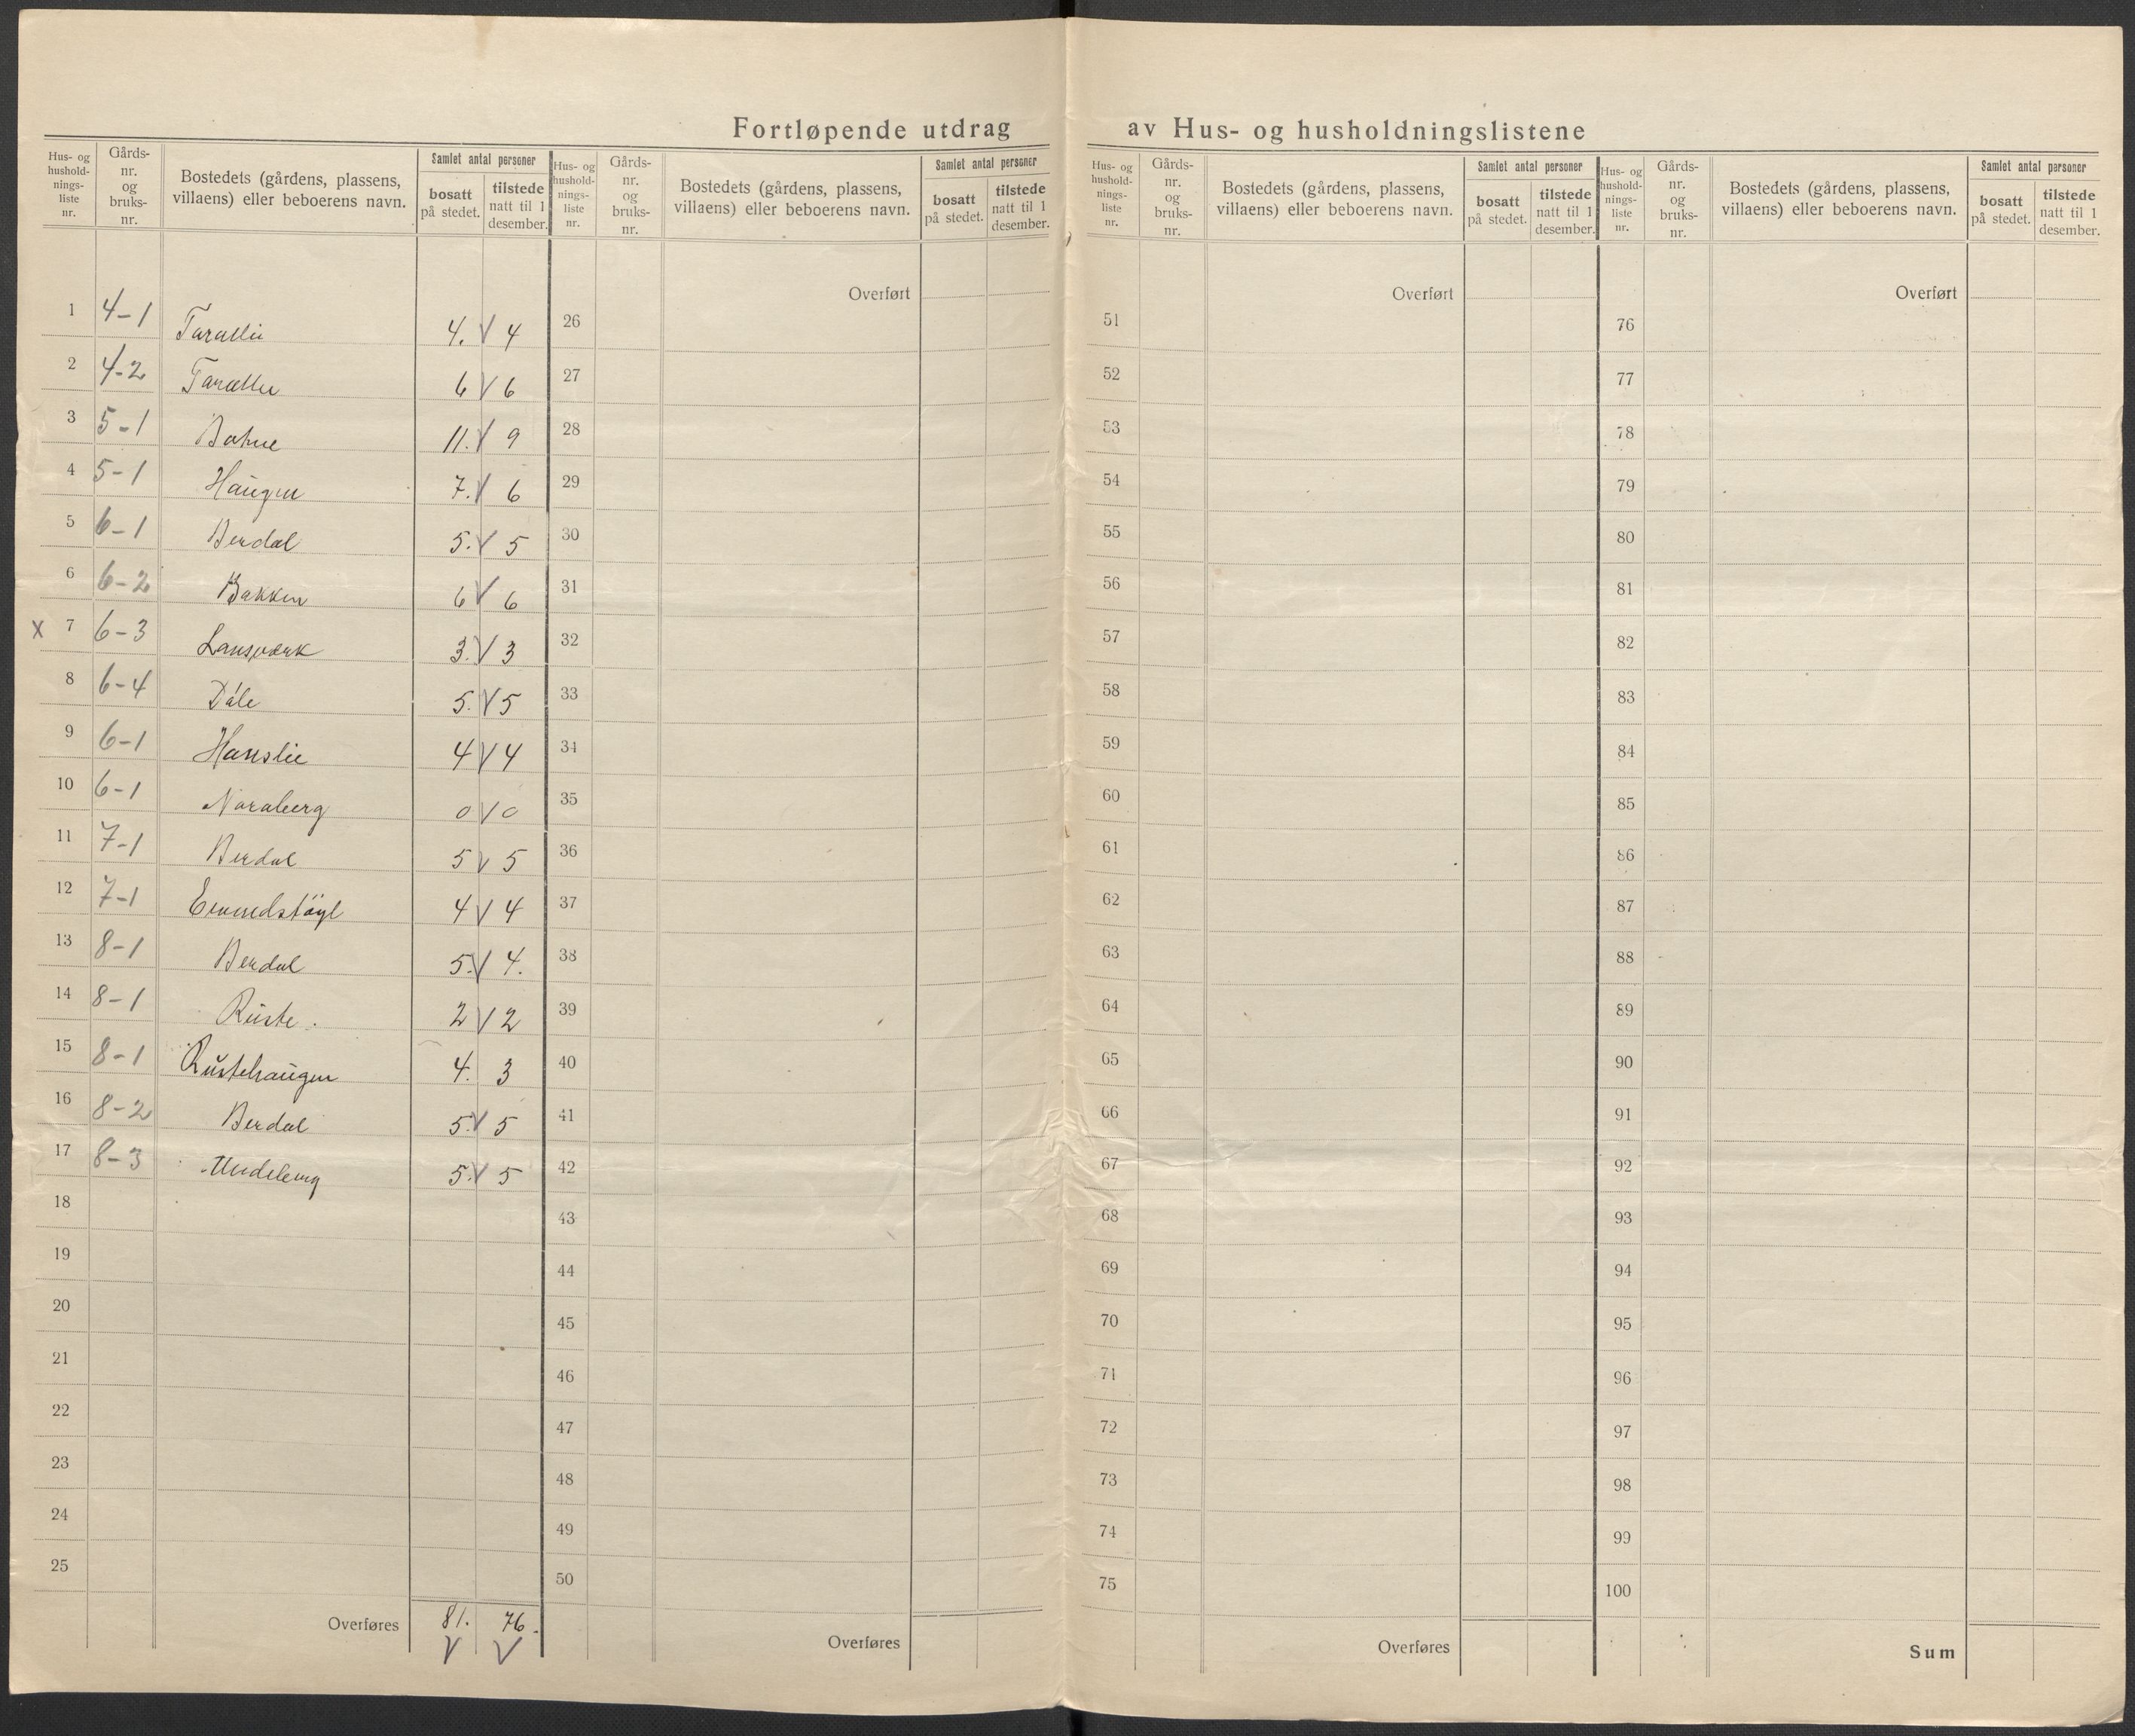 Fortløpende utdrag av Hus- og husholdningslistene
Hus- og hushold-nings-liste nr. Gårds-nr. og bruks-nr. Bostedets (gårdens, plassens, villaens) eller beboerens navn. Samlet antal personer bosatt på stedet. tilstede natt til 1 desember.
Hus- og hushold-nings-liste nr. Gårds-nr. og bruks-nr. Bostedets (gårdens, plassens, villaens) eller beboerens navn. Samlet antal personer bosatt på stedet. tilstede natt til 1 desember.
Hus- og hushold-nings-liste nr. Gårds-nr. og bruks-nr. Bostedets (gårdens, plassens, villaens) eller beboerens navn. Samlet antal personer bosatt på stedet. tilstede natt til 1 desember.
Hus- og hushold-nings-liste nr. Gårds-nr. og bruks-nr. Bostedets (gårdens, plassens, villaens) eller beboerens navn. Samlet antal personer bosatt på stedet. tilstede natt til 1 desember.
1 4-1 4. V 4
2 4-2 6 V 6
3 5-1 11. V 9
4 5-1 Haugen 7. V 6
5 6-1 Berdal 5. V 5
6 6-2 Bakken 6 V 6
X 7 6-3 3. V 3
8 6-4 Dale 5. V 5
9 6-1 Hanslie 4 V 4
10 6-1 Noraberg 0 V 0
11 7-1 Berdal 5 V 5
12 7-1 4 V 4
13 8-1 Berdal 5. V 4.
14 8-1 Ruste. 2 V 2
15 8-1 Rustehaugen 4. 3
16 8-2 Berdal 5. V 5
17 8-3 Undeberg 5. V 5
18
19
20
21
22
23
24
25
Overføres 81. 76.
V V
Overført
26
27
28
29
30
31
32
33
34
35
36
37
38
39
40
41
42
43
44
45
46
47
48
49
50
Overføres
Overført
51
52
53
54
55
56
57
58
59
60
61
62
63
64
65
66
67
68
69
70
71
72
73
74
75
Overføres
Overført
76
77
78
79
80
81
82
83
84
85
86
87
88
89
90
91
92
93
94
95
96
97
98
99
100
Sum